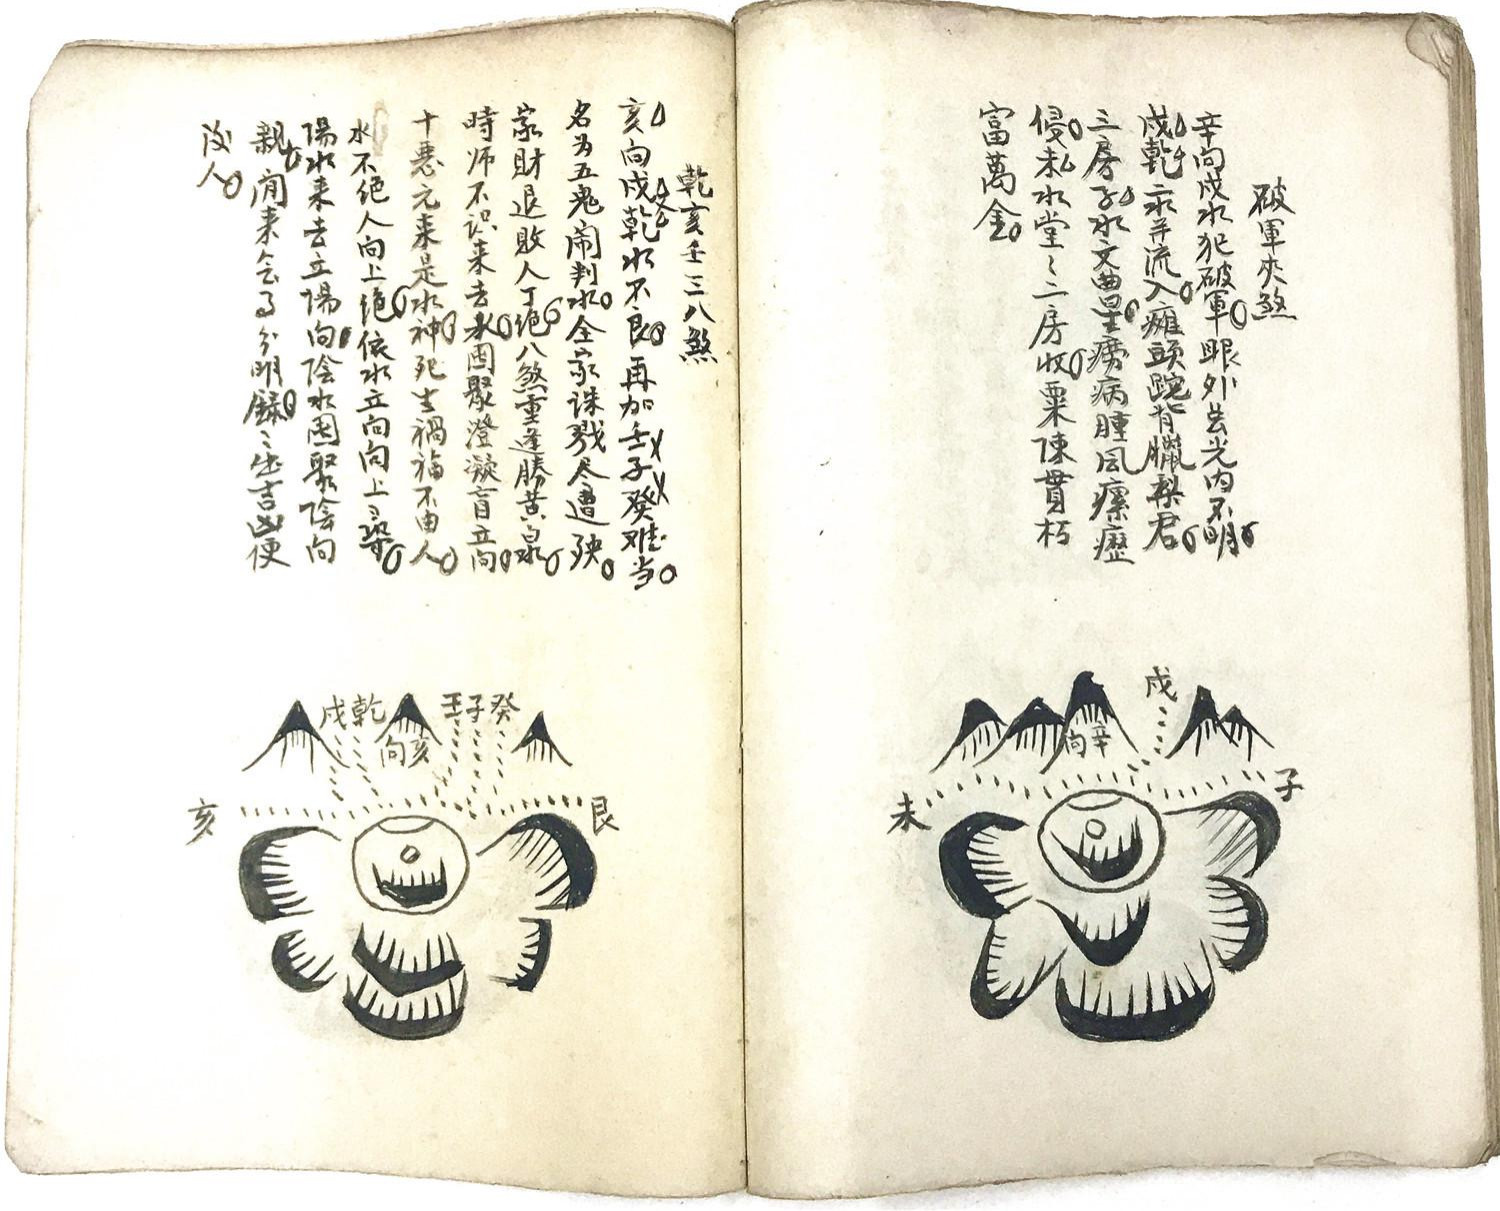 破軍夾煞
辛向戌水犯破軍眼外無光内不明
戌乾二水羊流入癱頭跎背臘梨君
三房子水文曲星癆病腫風瘰癧
侵未水堂〻二房收粟陳貫朽
富萬金
戌
辛向
子
未
乾亥壬三八煞
亥向戌乾水不良再加壬子癸难当
名为五鬼闹判水全家诛戮尽遭殃
家財退敗人丁绝八煞重逢勝黄泉
時师不识来去水团聚澄凝盲立向
十惡元来是水神死生禍福不由人
水不绝人向上绝依水立向向上
陽水来去立陽向陰水团聚陰向
親 来 分明錄〻生吉凶便
人
戌乾
亥向
壬子癸
亥
艮